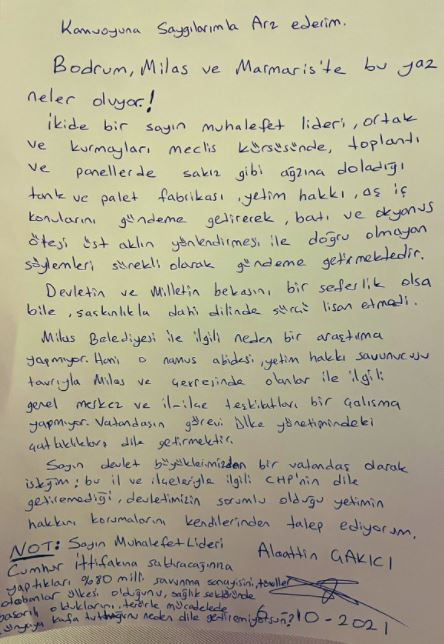 Kamuoyuna Saygılarımla Arz ederim.
Bodrum, Milas ve Marmaris'te bu yaz
neler oluyor!
İkide bir sayın muhalefet lideri, ortak
ve kurmayları meclis kürsüsünde, toplantı
ve panellerde sakız gibi ağzına doladığı
tank ve palet fabrikası, yetim hakkı, aş iş
konularını gündeme getirerek, batı ve okyonus
ötesi üst aklın yönlendirmesi ile doğru olmayan
söylemleri sürekli olarak gündeme getirmektedir.
Devletin ve Milletin bekasını bir seferlik olsa
bile, şaşkınlıkla dahi dilinde sürcü lisan etmedi.
Milas Belediyesi ile ilgili neden bir araştırma
yapmıyor. Hani o namus abidesi, yetim hakkı savunucusu
tavrıyla Milas ve çevresinde olanlar ile ilgili
genel merkez ve il-ilçe teşkilatları bir çalışma
yapmıyor. Vatandaşın görevi ülke yönetimindeki
çatlaklıkları dile getirmektir.
Sayın devlet büyüklerimizden bir vatandaş olarak
isteğim; bu il ve ilçeleriyle ilgili CHP'nin dile
getiremediği, devletimizin sorumlu olduğu yetimin
hakkını korumalarını kendilerinden talep ediyorum.
NOT: Sayın Muhalefet Lideri
Alaattin ÇAKICI
Cumhur İttifakına saldıracağına
yaptıkları %80 milli savunma sanayisini, tüneller
otobanlar ülkesi olduğunu, sağlık sektöründe
başarılı olduklarını, terörle mücadelede
dünyaya kafa tuttuğunu neden dile getiremiyorsun?
10-2021